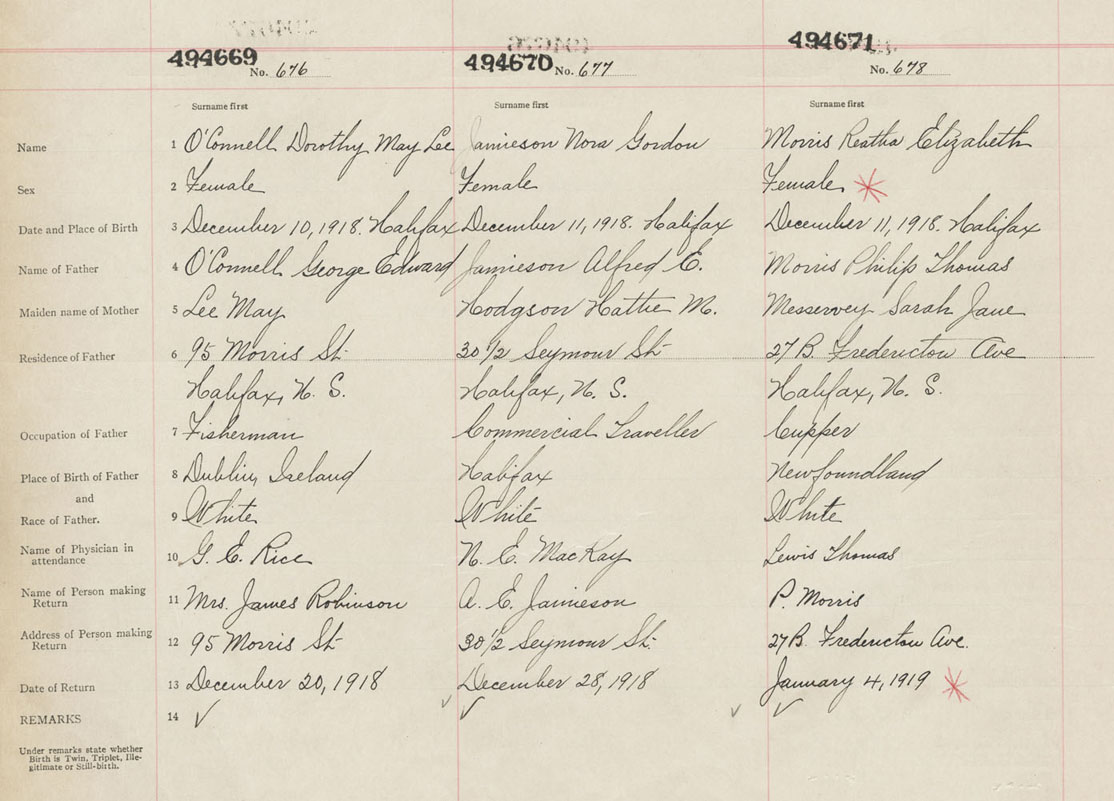 494669 No. 676 494670 No. 677 494671 No. 678
Surname first Surname first Surname first
Name 1 O'Connell Dorothy May Lee Jamieson Nora Gordon Morris Reatha Elizabeth
Sex 2 Female Female Female
Date and Place of Birth 3 December 10, 1918. Halifax December 11, 1918. Halifax December 11, 1918. Halifax
Name of Father 4 O'Connell George Edward Jamieson Alfred E. Morris Philip Thomas
Maiden name of Mother 5 Lee May Hodgson Hattie M. Messervey Sarah Jane
Residence of Father 6 95 Morris St. 30 1/2 Seymour St. 27 B. Fredericton Ave
Halifax, N. S. Halifax, N. S. Halifax, N. S.
Occupation of Father 7 Fisherman Commercial Traveller Cupper
Place of Birth of Father 8 Dublin, Ireland Halifax Newfoundland
and
Race of Father. 9 White White White
Name of Physician in attendance 10 G. E. Rice N. E. MacKay Lewis Thomas
Name of Person making Return 11 Mrs. James Robinson A. E. Jamieson P. Morris
Address of Person making Return 12 95 Morris St 30 1/2 Seymour St. 27 B. Fredericton Ave.
Date of Return 13 December 20, 1918 December 28, 1918 January 4, 1919
REMARKS 14
Under remarks state whether
Birth is Twin, Triplet, Ille-
gitimate or Still-birth.